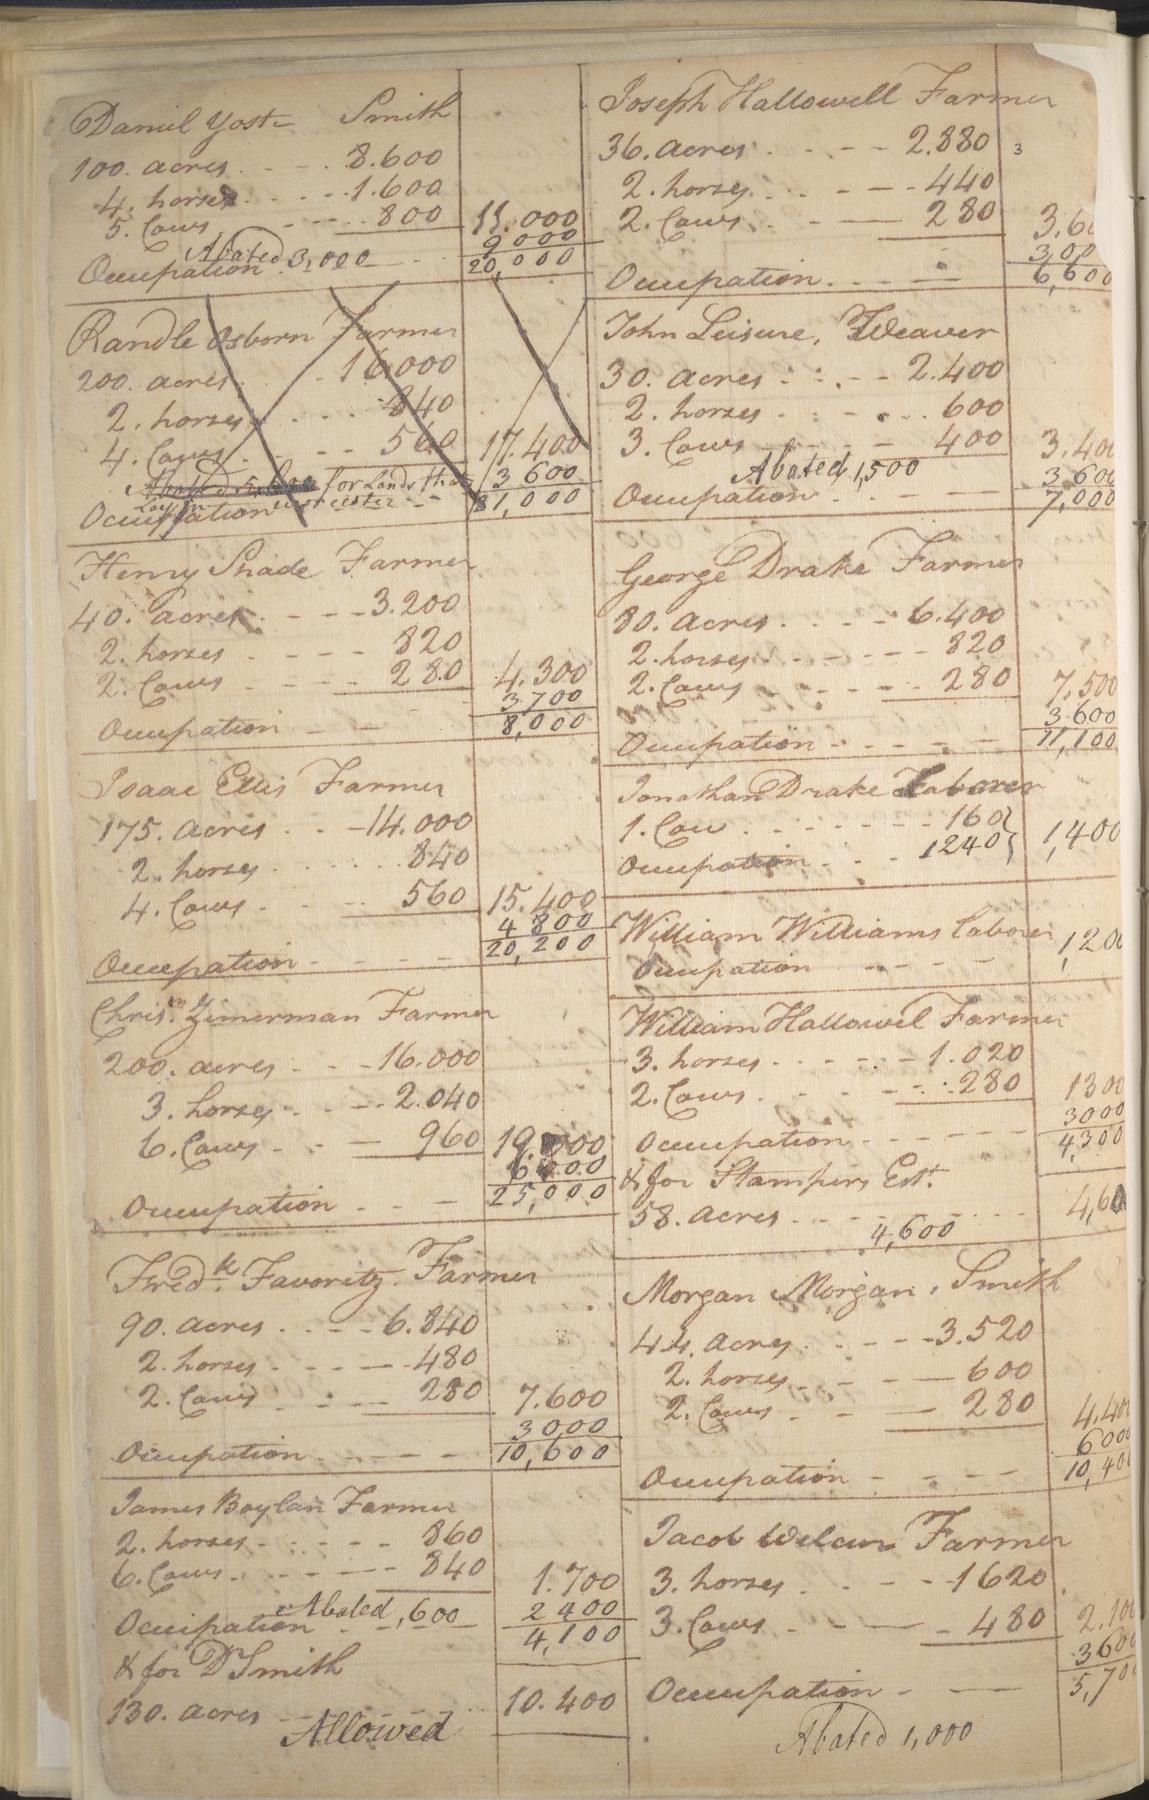 Daniel Yost Smith
100. acres - - 8.600
4. horses - - 1.600
5. Cows - - - 800 11.000
Abated 3,000 9000
Occupation - - 20,000
Randle Osborn Farmer
200. acres - - 16000
2. horses - - - 840
4. Cows - - 560 17.400
for Lands that 3600
Occupation - - 21,000
Henry Shade Farmer
40. acres - - - 3.200
2. horses - - - - 820
2. Cows - - - - 280 4.300
3700
Occupation - - 8,000
Isaac Ellis Farmer
175. acres - - 14.000
2. horses - - - 840
4. Cows - - - 560 15.400
4800
Occupation - - - - 20,200
Chrisn. Zimerman Farmer
200. acres - - - 16.000
3. horses - - - 2.040
6. Cows - - - 960 19.000
6000
Occupation - - - 25,000
Fredk. Favoritz. Farmer
90. acres - - - - 6.840
2. horses - - - - 480
2. Cows - - - 280 7.600
3000
Occupation - - - - 10,600
James Boylan Farmer
2. horses - - - - - 860
6. Cows - - - - - 840 1.700
Abated ,600 2400
Occupation - - - 4,100
& for D Smith
130. acres - - - - - 10.400
Allowed
Joseph Hallowell Farmer
36. acres - - - - 2.880 3
2. horses - - - - 440
2. Cows - - - 280 3.60
3,00
Occupation - - - - 6,600
John Leisure, Weaver
30. acres - - - - 2.400
2. horses - - - - 600
3. Cows - - - - 400 3.400
Abated 1,500 3600
Occupation - - - - 7,000
George Drake Farmer
80. acres - - - - 6.400
2. horses - - - - - 820
2. Cows - - - - - 280 7,500
3600
Occupation - - - - - 11,100
Jonathan Drake Laborer
1. Cow - - - - - - - 160
Occupation - - - 1240 1,400
William Williams Laborer
Occupation - - - - 1,200
William Hallowel Farmer
3. horses - - - - - 1.020
2. Cows - - - - - 280 1300
3000
Occupation - - - - - - 4,300
& for Stampers Est.
58. acres - - - - - - - 4,60
4,600
Morgan Morgan, Smith
44. acres - - - - 3.520
2. horses - - - - 600
2. Cows - - - 280 4.40
6000
Occupation - - - - 10,40
Jacob Farmer
3. horses - - - - 1620
3. Cows - - - - 480 2.100
3600
Occupation - - - 5,70
Abated 1,000